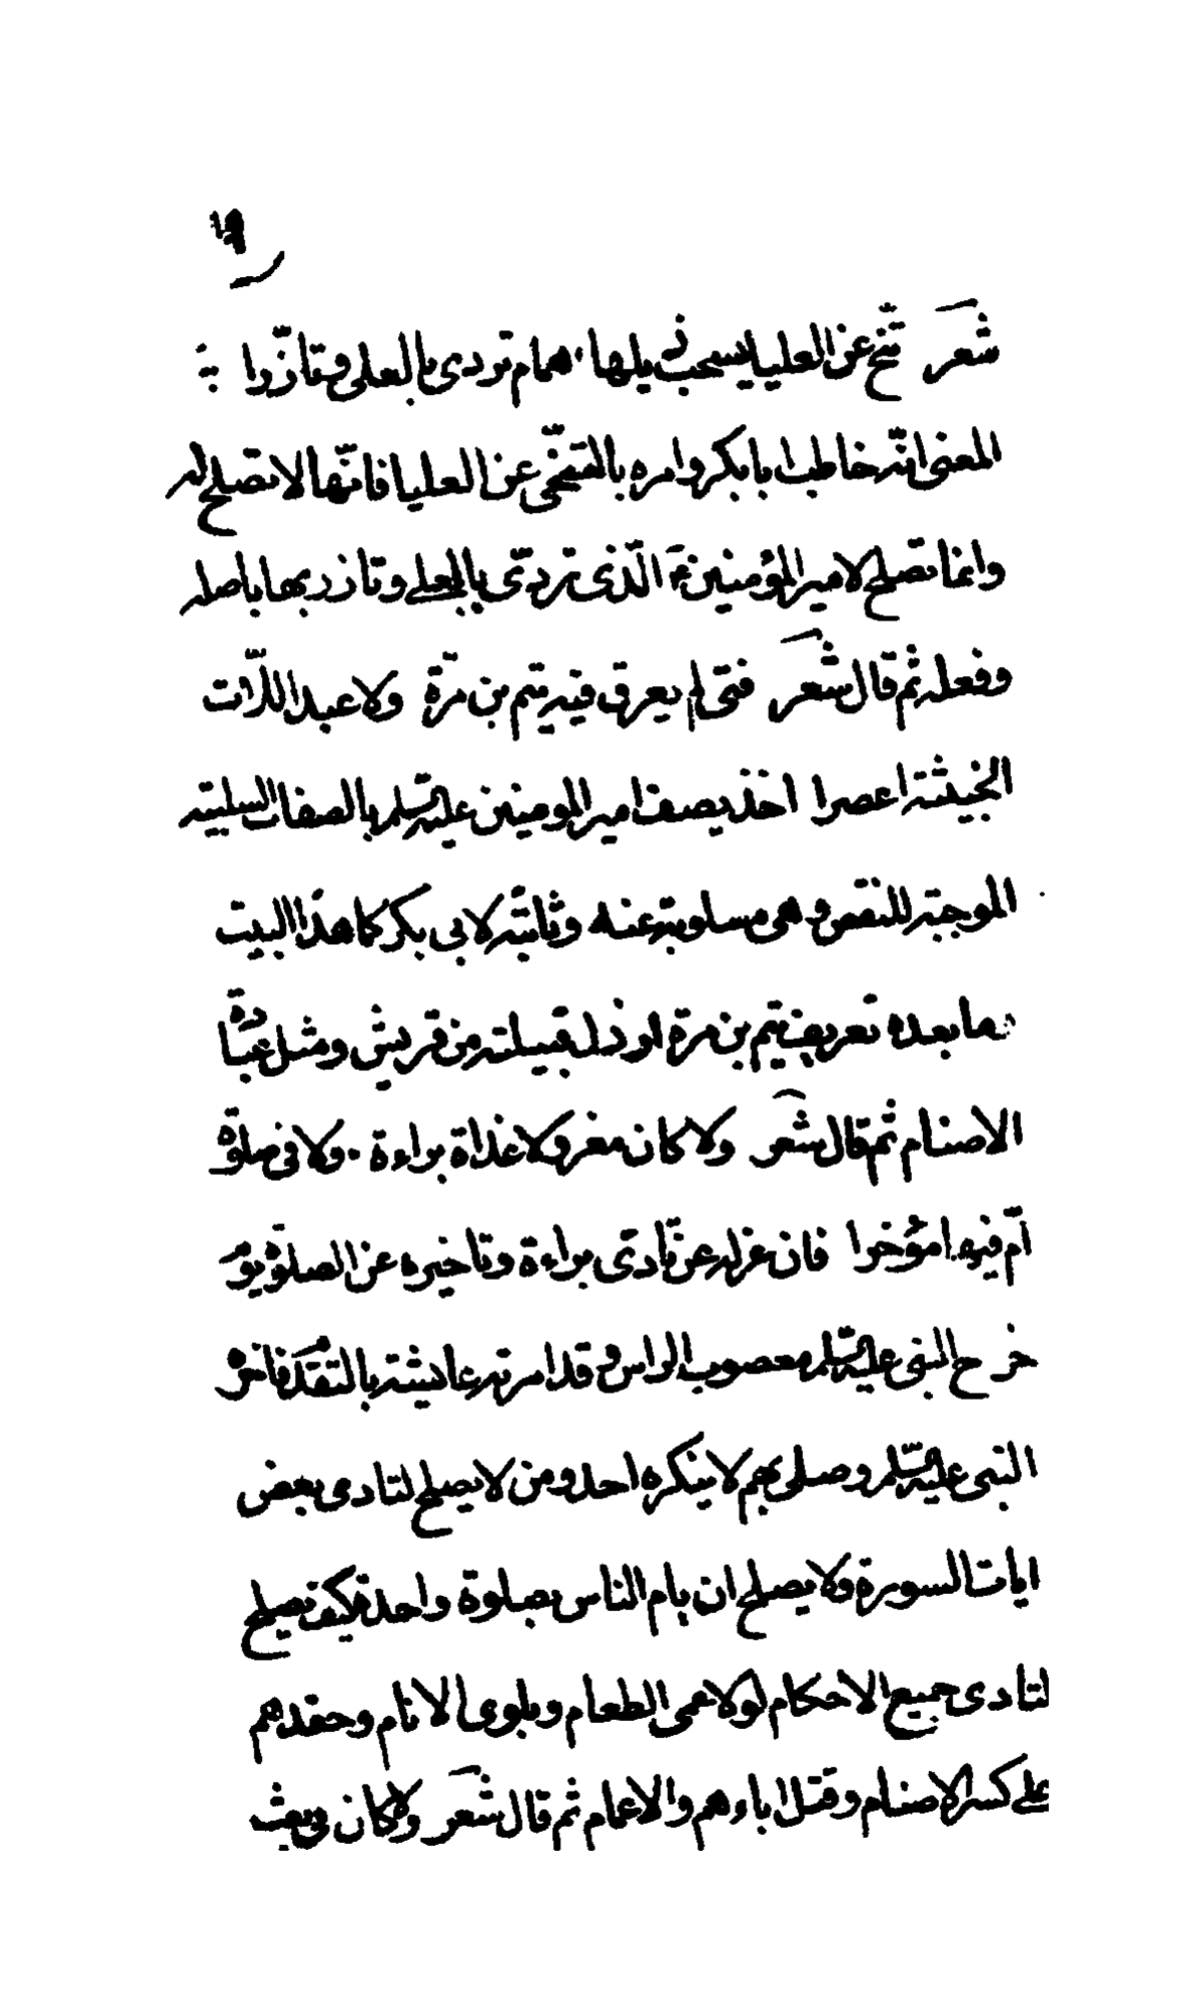 شعر تنح عن العليا يسحب ذيلها همام تردى بالعلى وتازّرا
المعنى انه خاطب ابا بكر وامره بالتنحّى عن العليا فانّها لا تصلح له
وانما تصلح لامير المؤمنين الّذى تردّى بالعلى وتازر بها باصله
وفعله ثم قال شعر فتى لم يعرق فيه تيم بن مرّة ولا عبد اللات
الخبيثة اعصرا اخذ يصف امير المومنين عليه السلم بالصفات السلبيته
الموجبته للنقص وهى مسلوبته عنه وثابتّه لابى بكر كما هذا البيت
وما بعده تعريف تيم بن مرة ارذل قبيلته من قريش ومثل عبادة
الاصنام ثم قال شعر ولا كان معزولا غداة براءة ولا فى صلوة
امّ فيها مؤخرا فان عزله عن تادى براءة وتاخيره عن الصلوة يوم
خرج النبى عليه السلم معصوب الراس وقد امرته عايشته بالتقدم فاخره
النبى عليه السلم وصلى بهم لا ينكره احد ومن لا يصلح لتادى بعض
ايات السورة ولا يصلح ان يام الناس بصلوة واحدة فكيف يصلح
لتادى جميع الاحكام لولا عمى الطعام وبلوى الانام وحقدهم
على كسر الاصنام وقتل اباءهم والاعمام ثم قال شعر ولا كان فى بعث